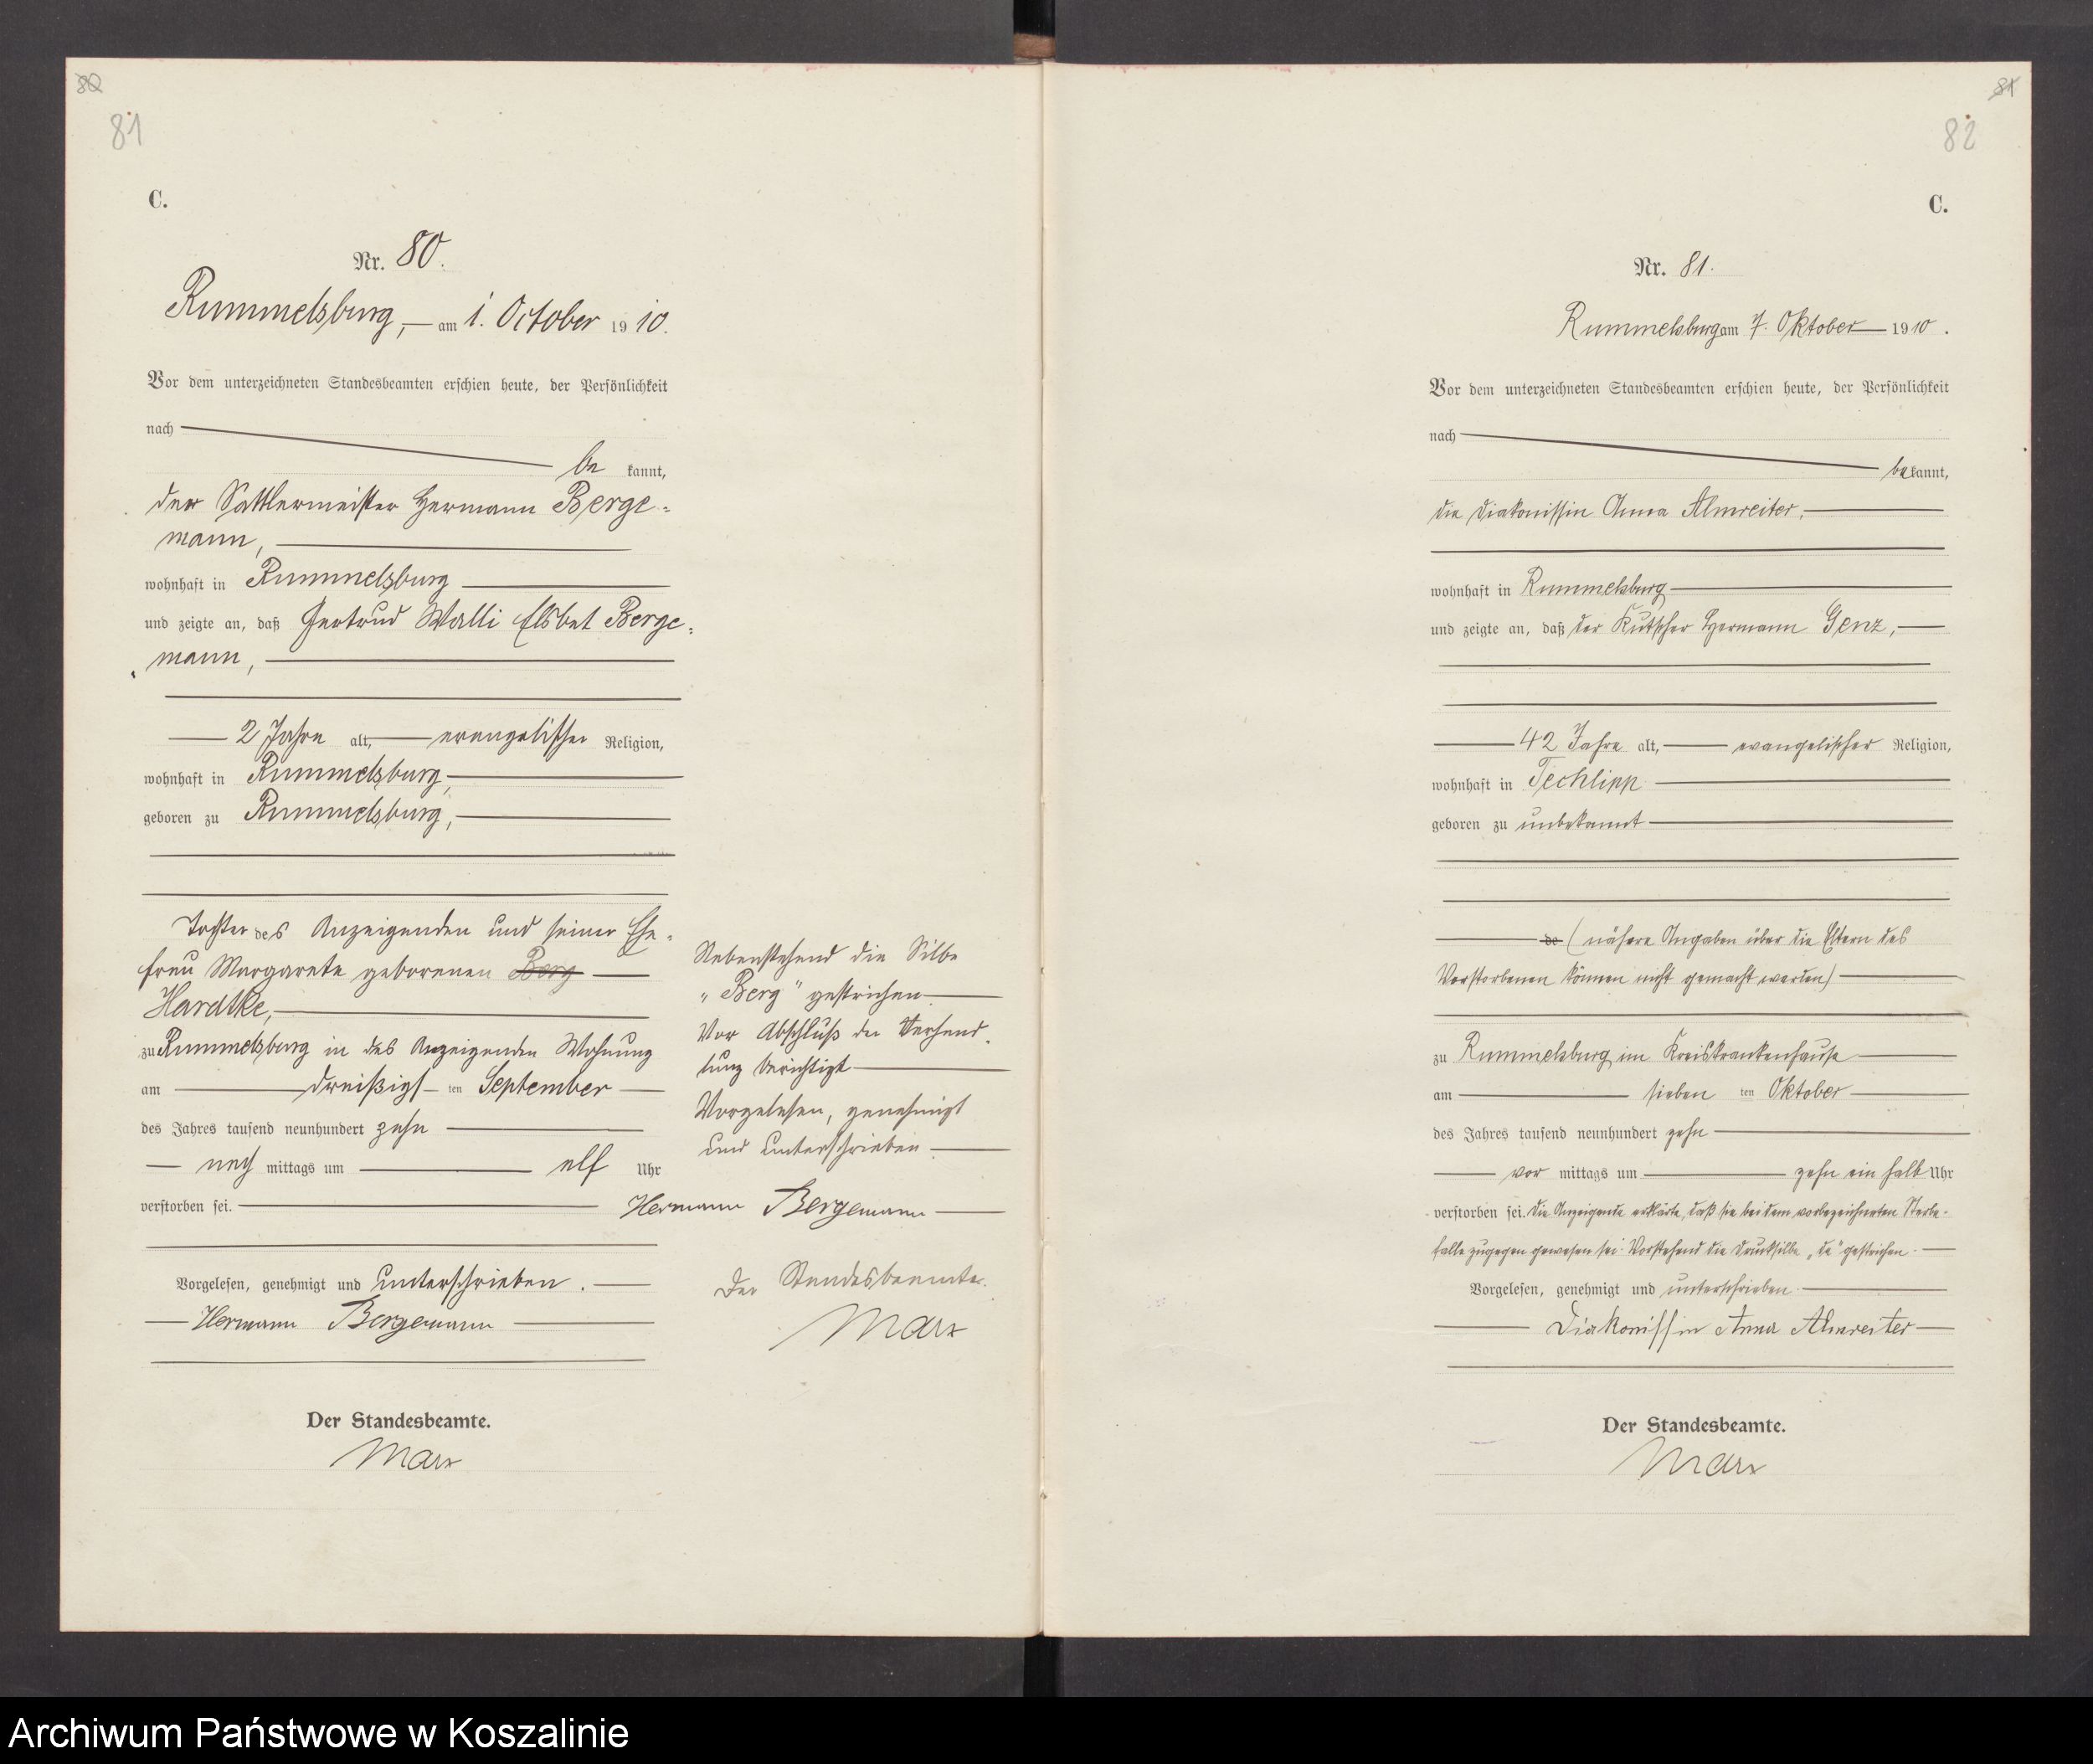 80
81
C.
Nr. 80.
Rummelsburg, am 1. October 1910.
Vor dem unterzeichneten Standesbeamten erschien heute, der Persönlichkeit
nach
be kannt,
der Sattlermeister Hermann Berge-
mann,
wohnhaft in Rummelsburg
und zeigte an, daß Gertrud Walli Elsbet Berge-
mann,
2 Jahre alt, evangelischer Religion,
wohnhaft in Rummelsburg,
geboren zu Rummelsburg,
Tochter des Anzeigenden und seiner Ehe-
frau Margarete geborenen Berg
Hardtke,
zu Rummelsburg in des Anzeigenden Wohnung
am dreißigs ten September
des Jahres tausend neunhundert zehn
nach mittags um elf Uhr
verstorben sei.
Vorgelesen, genehmigt und unterschrieben.
Hermann Bergemann
Der Standesbeamte.
Marx
Nebenstehend die Silbe
"Berg" gestrichen
Vor Abschluß der Verhand-
lung berichtigt
Vorgelesen, genehmigt
und unterschrieben
Hermann Bergemann
Der Standesbeamte.
Marx
81
82
C.
Nr. 81.
Rummelsburg am 7. Oktober 1910.
Vor dem unterzeichneten Standesbeamten erschien heute, der Persönlichkeit
nach
bekannt,
die Diakonissin Anna Almreiter,
wohnhaft in Rummelsburg
und zeigte an, daß der Kutscher Hermann Genz,
42 Jahre alt, evangelischer Religion,
wohnhaft in Techlipp
geboren zu unbekannt
de (nähere Angaben über die Eltern des
Verstorbenen können nicht gemacht werden)
zu Rummelsburg im Kreiskrankenhause
am sieben ten Oktober
des Jahres tausend neunhundert zehn
vor mittags um zehn ein halb Uhr
verstorben sei. Die Anzeigende erklärte, daß sie bei dem vorbezeichneten Sterbe-
falle zugegen gewesen sei. Vorstehend die Drucksilbe "de" gestrichen.
Vorgelesen, genehmigt und unterschrieben
Diakonissin Anna Almreiter
Der Standesbeamte.
Marx
Archiwum Państwowe w Koszalinie